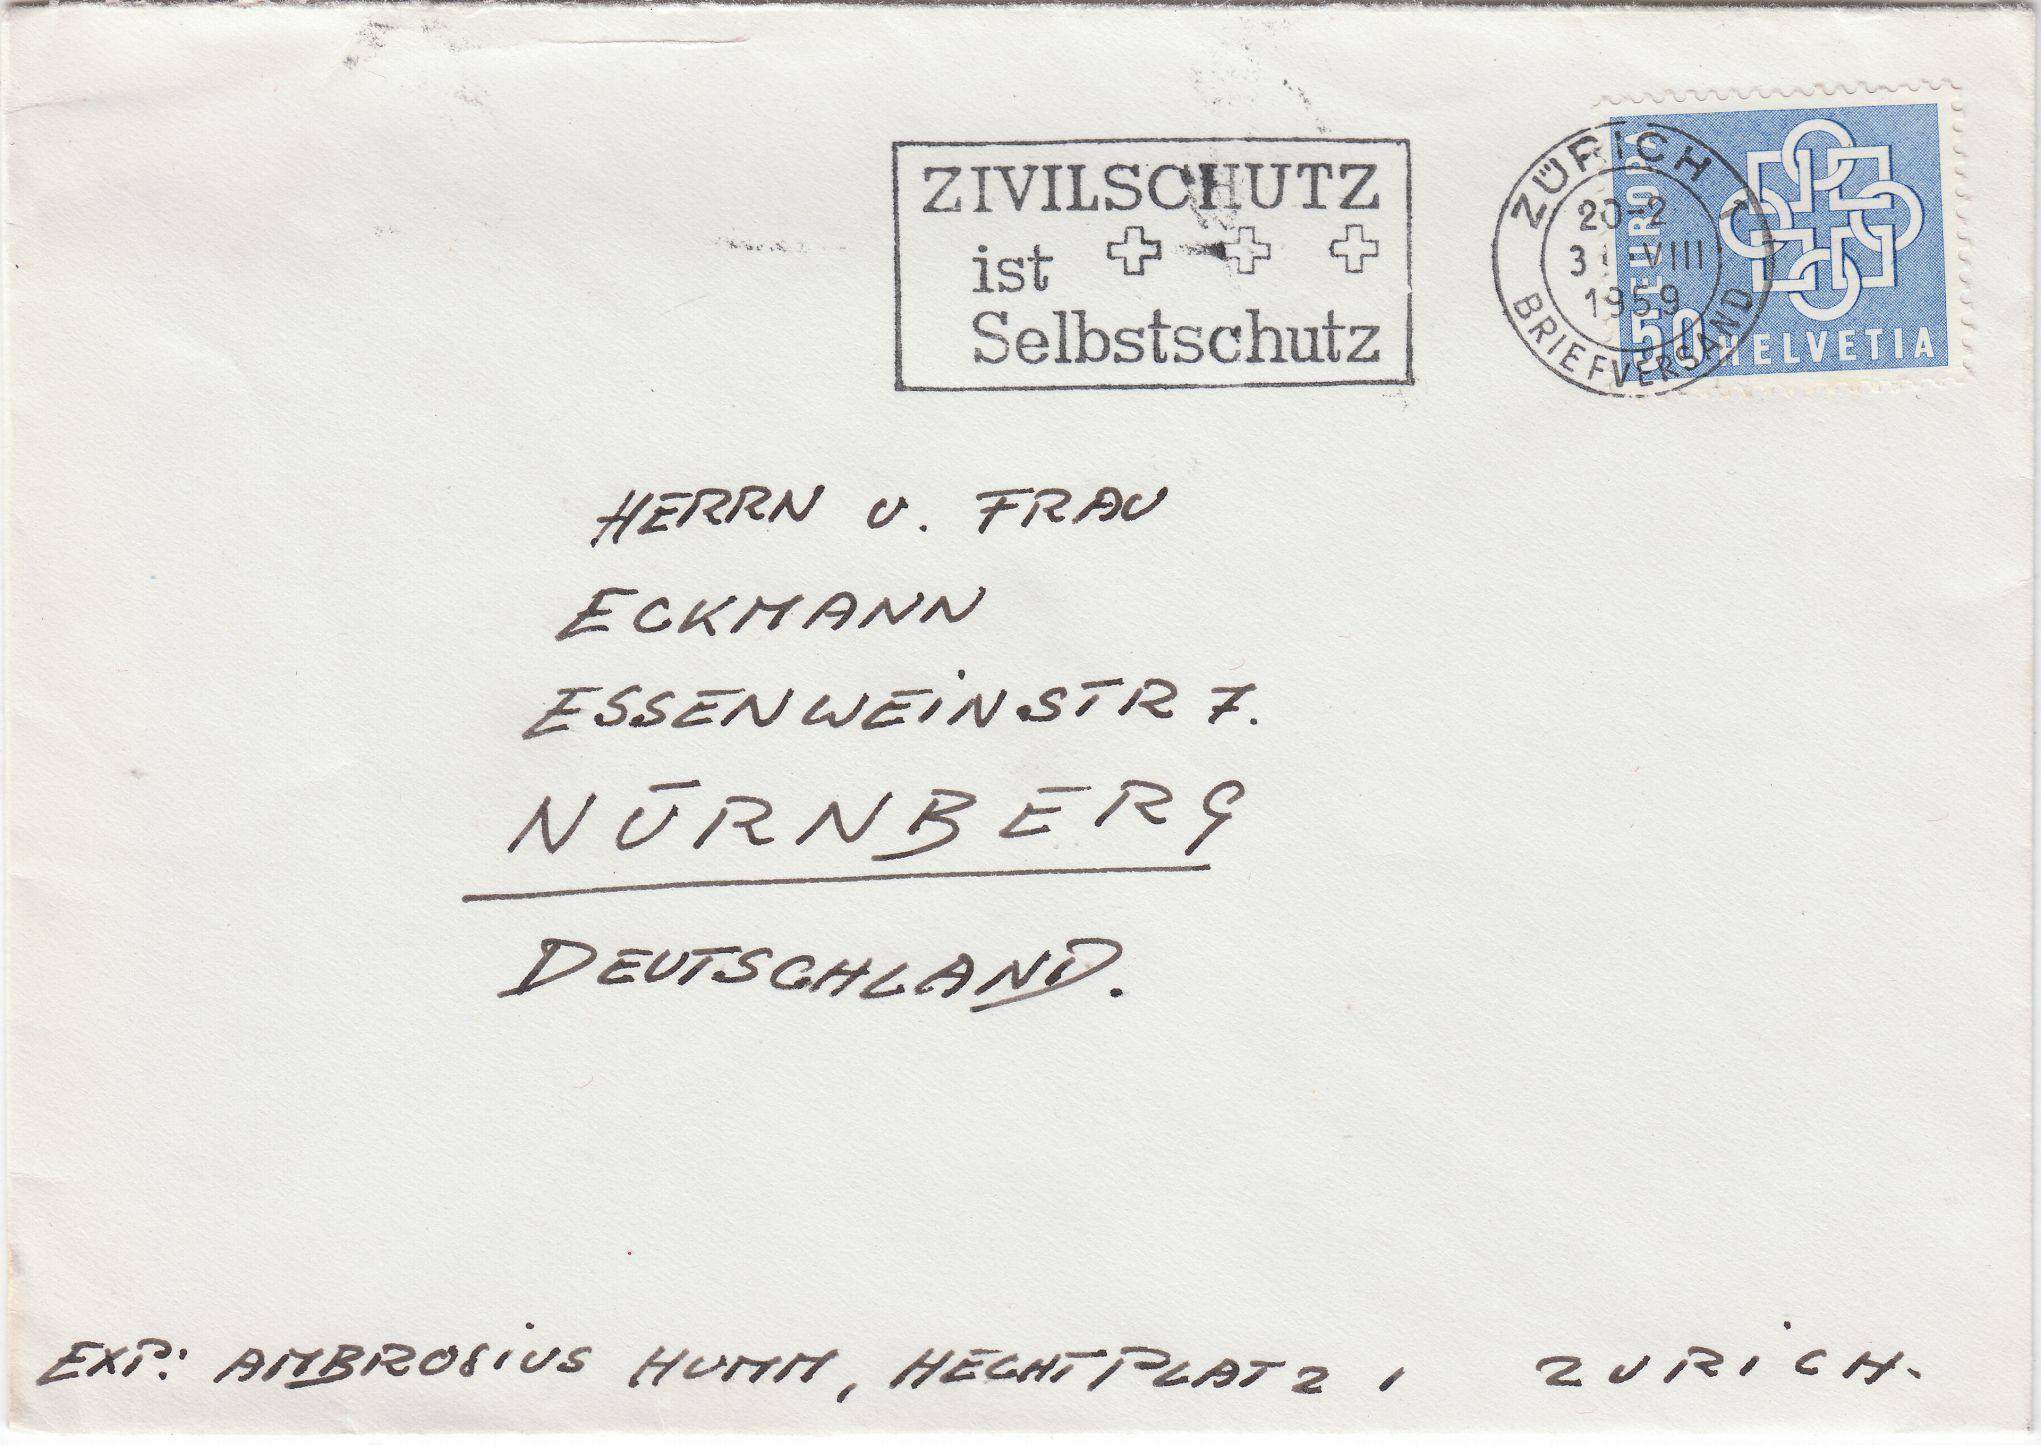 ZIVILSCHUTZ
ist
Selbstschutz
ZÜRICH 1
20-2
31 VIII
1959
BRIEFVERSAND
EUROPA
50 HELVETIA
HERRN U. FRAU
ECKMANN
ESSENWEINSTR 7.
NÜRNBERG
DEUTSCHLAND.
EXP: AMBROSIUS HUMM, HECHTPLATZ 1 ZURICH.